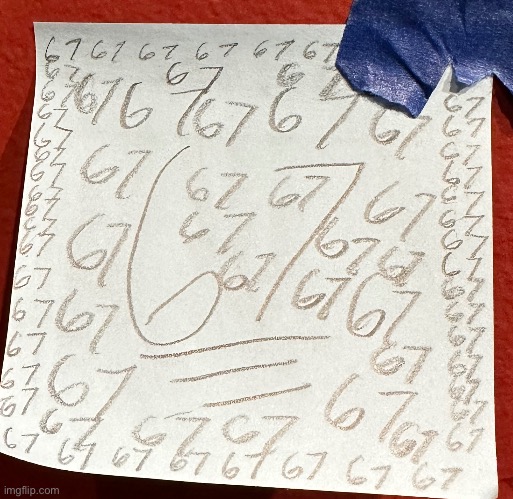 67 67 67 67 67 67
67 67 6
67 67 6 7 67 67 67
67 67 67
67 67
67 67 67 67 67
67 67 67
67 67 67 67 67
67 67 67 67
67 67 67
67 67 67 67
67 67 67
67 67 67 67
67 67 67
67 67 67 67
67 67 67 67 67 67
67 67 67 67 67 67 67 67
imgflip.com